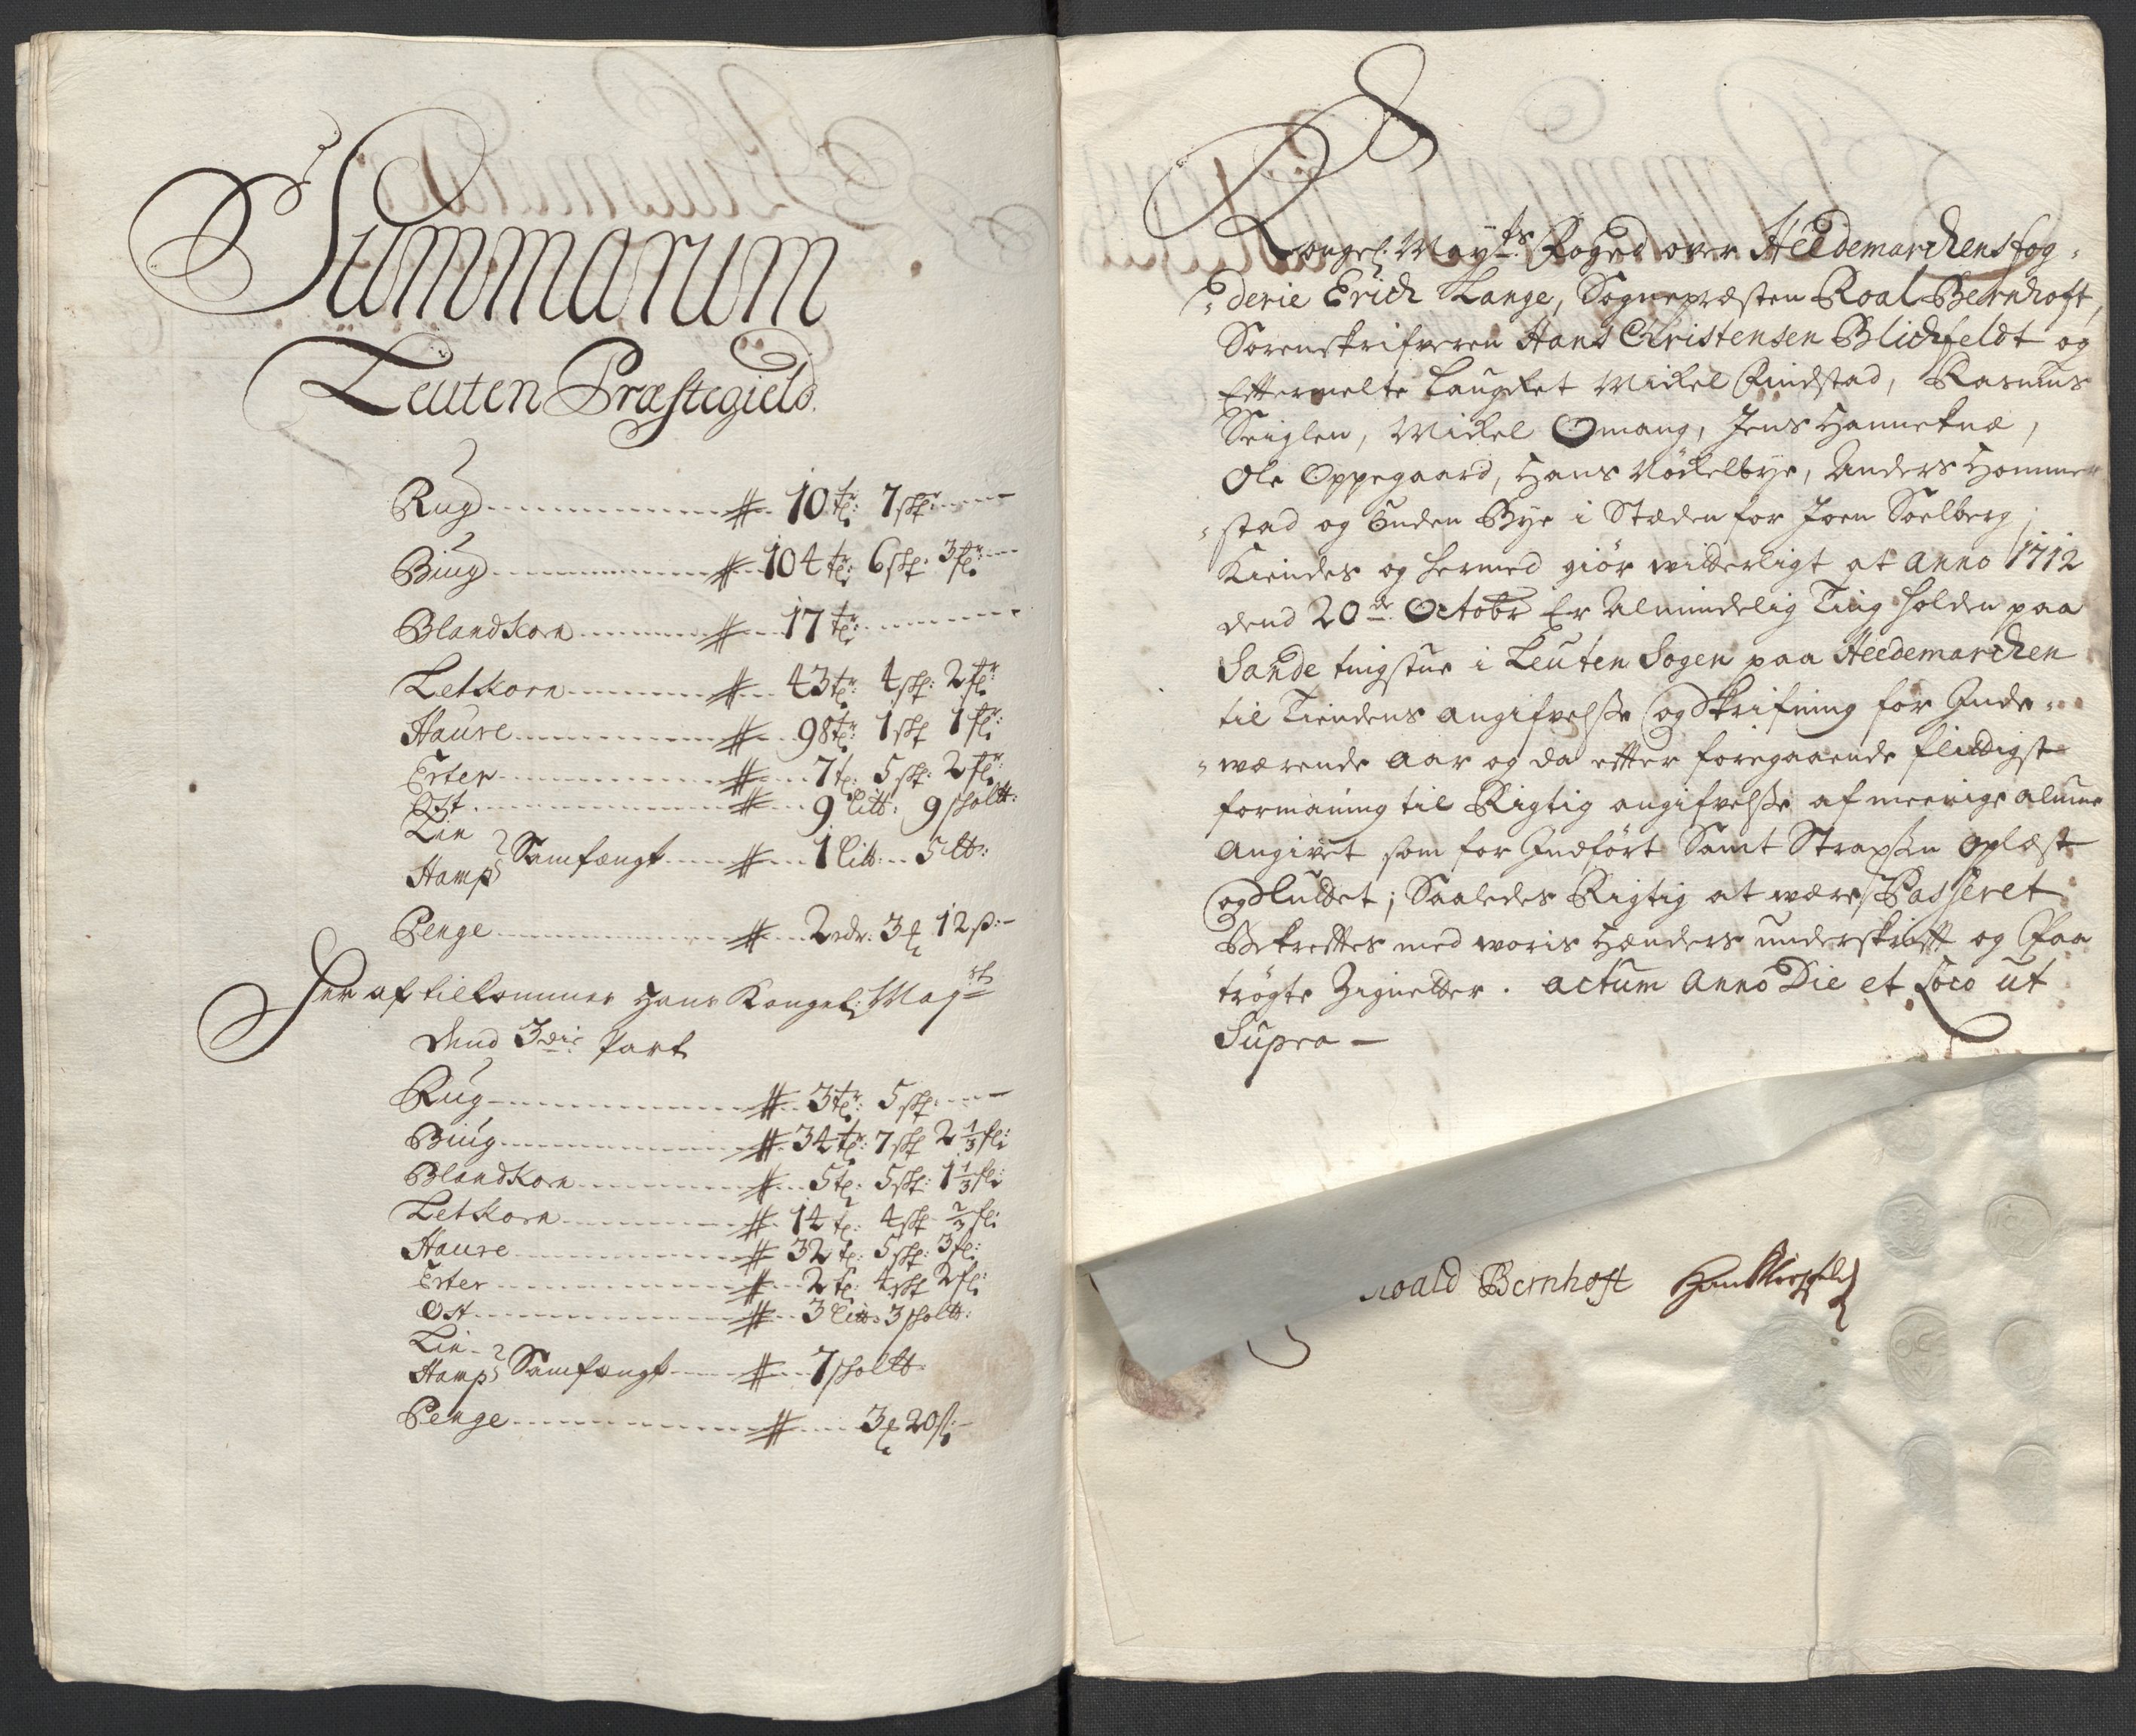 Summarum
Leuten Præstegield.
Rug # 10 tr: 7 skp:
Biug # 104 tr: 6 skp: 3 fr:
Blandkorn # 17 tr:
Letkorn # 43 tr: 4 skp: 2 fr:
Haure # 98 tr: 1 skp 1 fr:
Erter # 7 t: 5 skp: 2 fr:
Ost # 9 litt: 9 skoltt:
Lin
Hamp Samfængt # 1 litt: 5 ltt:
Penge # 2 rdr: 3 12 s:
Her af tilkommer Hans Kongel: Mayst
dend 3die Part
Rug # 3 tr: 5 skp:
Biug # 34 tr: 7 skp 2 1/3 fl:
Blandkorn # 5 t: 5 skp: 1 1/3 fl:
Letkorn # 14 t: 4 skp 2/3 fl:
Haure # 32 t: 5 skp: 3 fl:
Erter # 2 t: 4 skp 2 fl:
Ost # 3 litt: 3 skoltt:
Lin
Hamp Samfængt # 7 skoltt:
Penge # 3 20 s:
Kongel: Mayts: Foged over Heedemarchens fog-
derie Erich Lange, Sognepræsten Roal Bernhoft,
Sorenskrifveren Hans Christensen Blichfeldt og
Effternelte Laugret Mickel Findstad, Rasmus
Seiglen, Mickel Omang, Jens Hannekne,
Ole Oppegaard, Hans Nöckelbye, Anders Hommer
stad og Enden Bye i Stæden for Joen Soelberg;
Kiendes og hermed giör witterligt at Anno 1712
dend 20de Octobr Er Almindelig Ting holden paa
Sande tingstue i Leuten Sogen paa Heedemarchen
til Tiendens angifvelsse og Skrifning for Inde-
værende Aar og da effter foregaaende flittigst
formaning til Rigtig angifvelsse af meenige almue
Angivet som for Indfört Samt Straxsen oplæst
og Sluttet; Saaledes Rigtig at være Passeret
Bekreftes med woris Hænders underskrift og Paa
trögte Zignetter. Actum Anno Die et Loco ut
Supra —
Roald Bernhoft Hans Blichfeldt